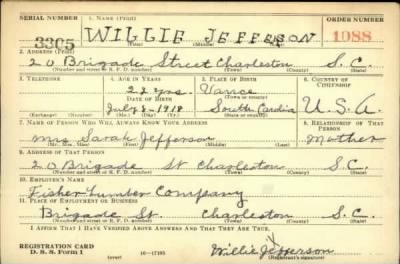 SERIAL NUMBER 1. NAME (Print) ORDER NUMBER
3305 WILLIE JEFFERSON 1088
(First) (Middle) (Last)
2. ADDRESS (Print)
20 Brigade Street Charleston S.C.
(Number and street or R. F. D. number) (Town) (County) (State)
3. TELEPHONE 4. AGE IN YEARS 5. PLACE OF BIRTH 6. COUNTRY OF CITIZENSHIP
22 yrs. Vance
DATE OF BIRTH (Town or county)
July 5 1918 South Carolia U.S.A.
(Exchange) (Number) (Mo.) (Day) (Yr.) (State or country)
7. NAME OF PERSON WHO WILL ALWAYS KNOW YOUR ADDRESS 8. RELATIONSHIP OF THAT PERSON
Mrs Sarah Jefferson Mother
(Mr., Mrs., Miss) (First) (Middle) (Last)
9. ADDRESS OF THAT PERSON
20 Brigade St Charleston S.C.
(Number and street or R. F. D. number) (Town) (County) (State)
10. EMPLOYER'S NAME
Fisher Lumber Company
11. PLACE OF EMPLOYMENT OR BUSINESS
Brigade St. Charleston S.C.
(Number and street or R. F. D. number) (Town) (County) (State)
I AFFIRM THAT I HAVE VERIFIED ABOVE ANSWERS AND THAT THEY ARE TRUE.
REGISTRATION CARD Willie Jefferson
D. S. S. Form 1 (over) 16—17105 (Registrant's signature)